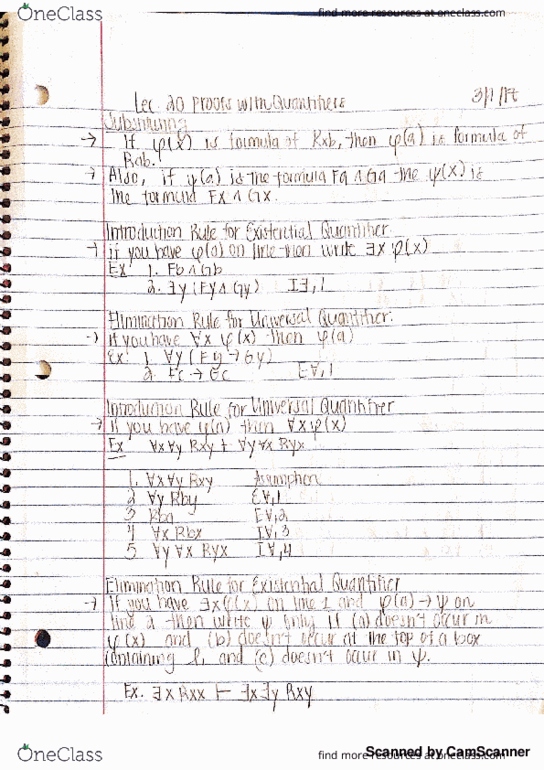 OneClass
find more resources at oneclass.com
Lec. 20 Proofs with Quantifiers
Substituting
→ If φ(x) is formula of Rxb, then φ(a) is formula of
Rab.
→ Also, if φ(a) is the formula Fa ∧ Ga the φ(x) is
the formula Fx ∧ Gx.
Introduction Rule for Existential Quantifier
→ if you have φ(a) on line then write ∃x φ(x)
Ex: 1. Fb ∧ Gb
2. ∃y (Fy ∧ Gy) I∃,1
Elimination Rule for Universal Quantifier:
→ if you have ∀x φ(x) then φ(a)
Ex: 1. ∀y (Fy → Gy)
2. Fc → Gc E∀,1
Introduction Rule for Universal Quantifier
→ if you have φ(a) then ∀x φ(x)
Ex ∀x∀y Rxy ⊢ ∀y∀x Ryx
1. ∀x∀y Rxy Assumption
2 ∀y Rby E∀,1
3 Rba E∀,2
4 ∀x Rbx I∀,3
5. ∀y ∀x Ryx I∀,4
Elimination Rule for Existential Quantifier
→ if you have ∃xφ(x) on line 1 and φ(a) → ψ on
line 2 then write ψ only if (a) doesn't occur in
φ(x) and (b) doesn't occur at the top of a box
containing l, and (c) doesn't occur in ψ.
Ex. ∃x Rxx ⊢ ∃x∃y Rxy
OneClass
find more resources at oneclass.com
Scanned by CamScanner